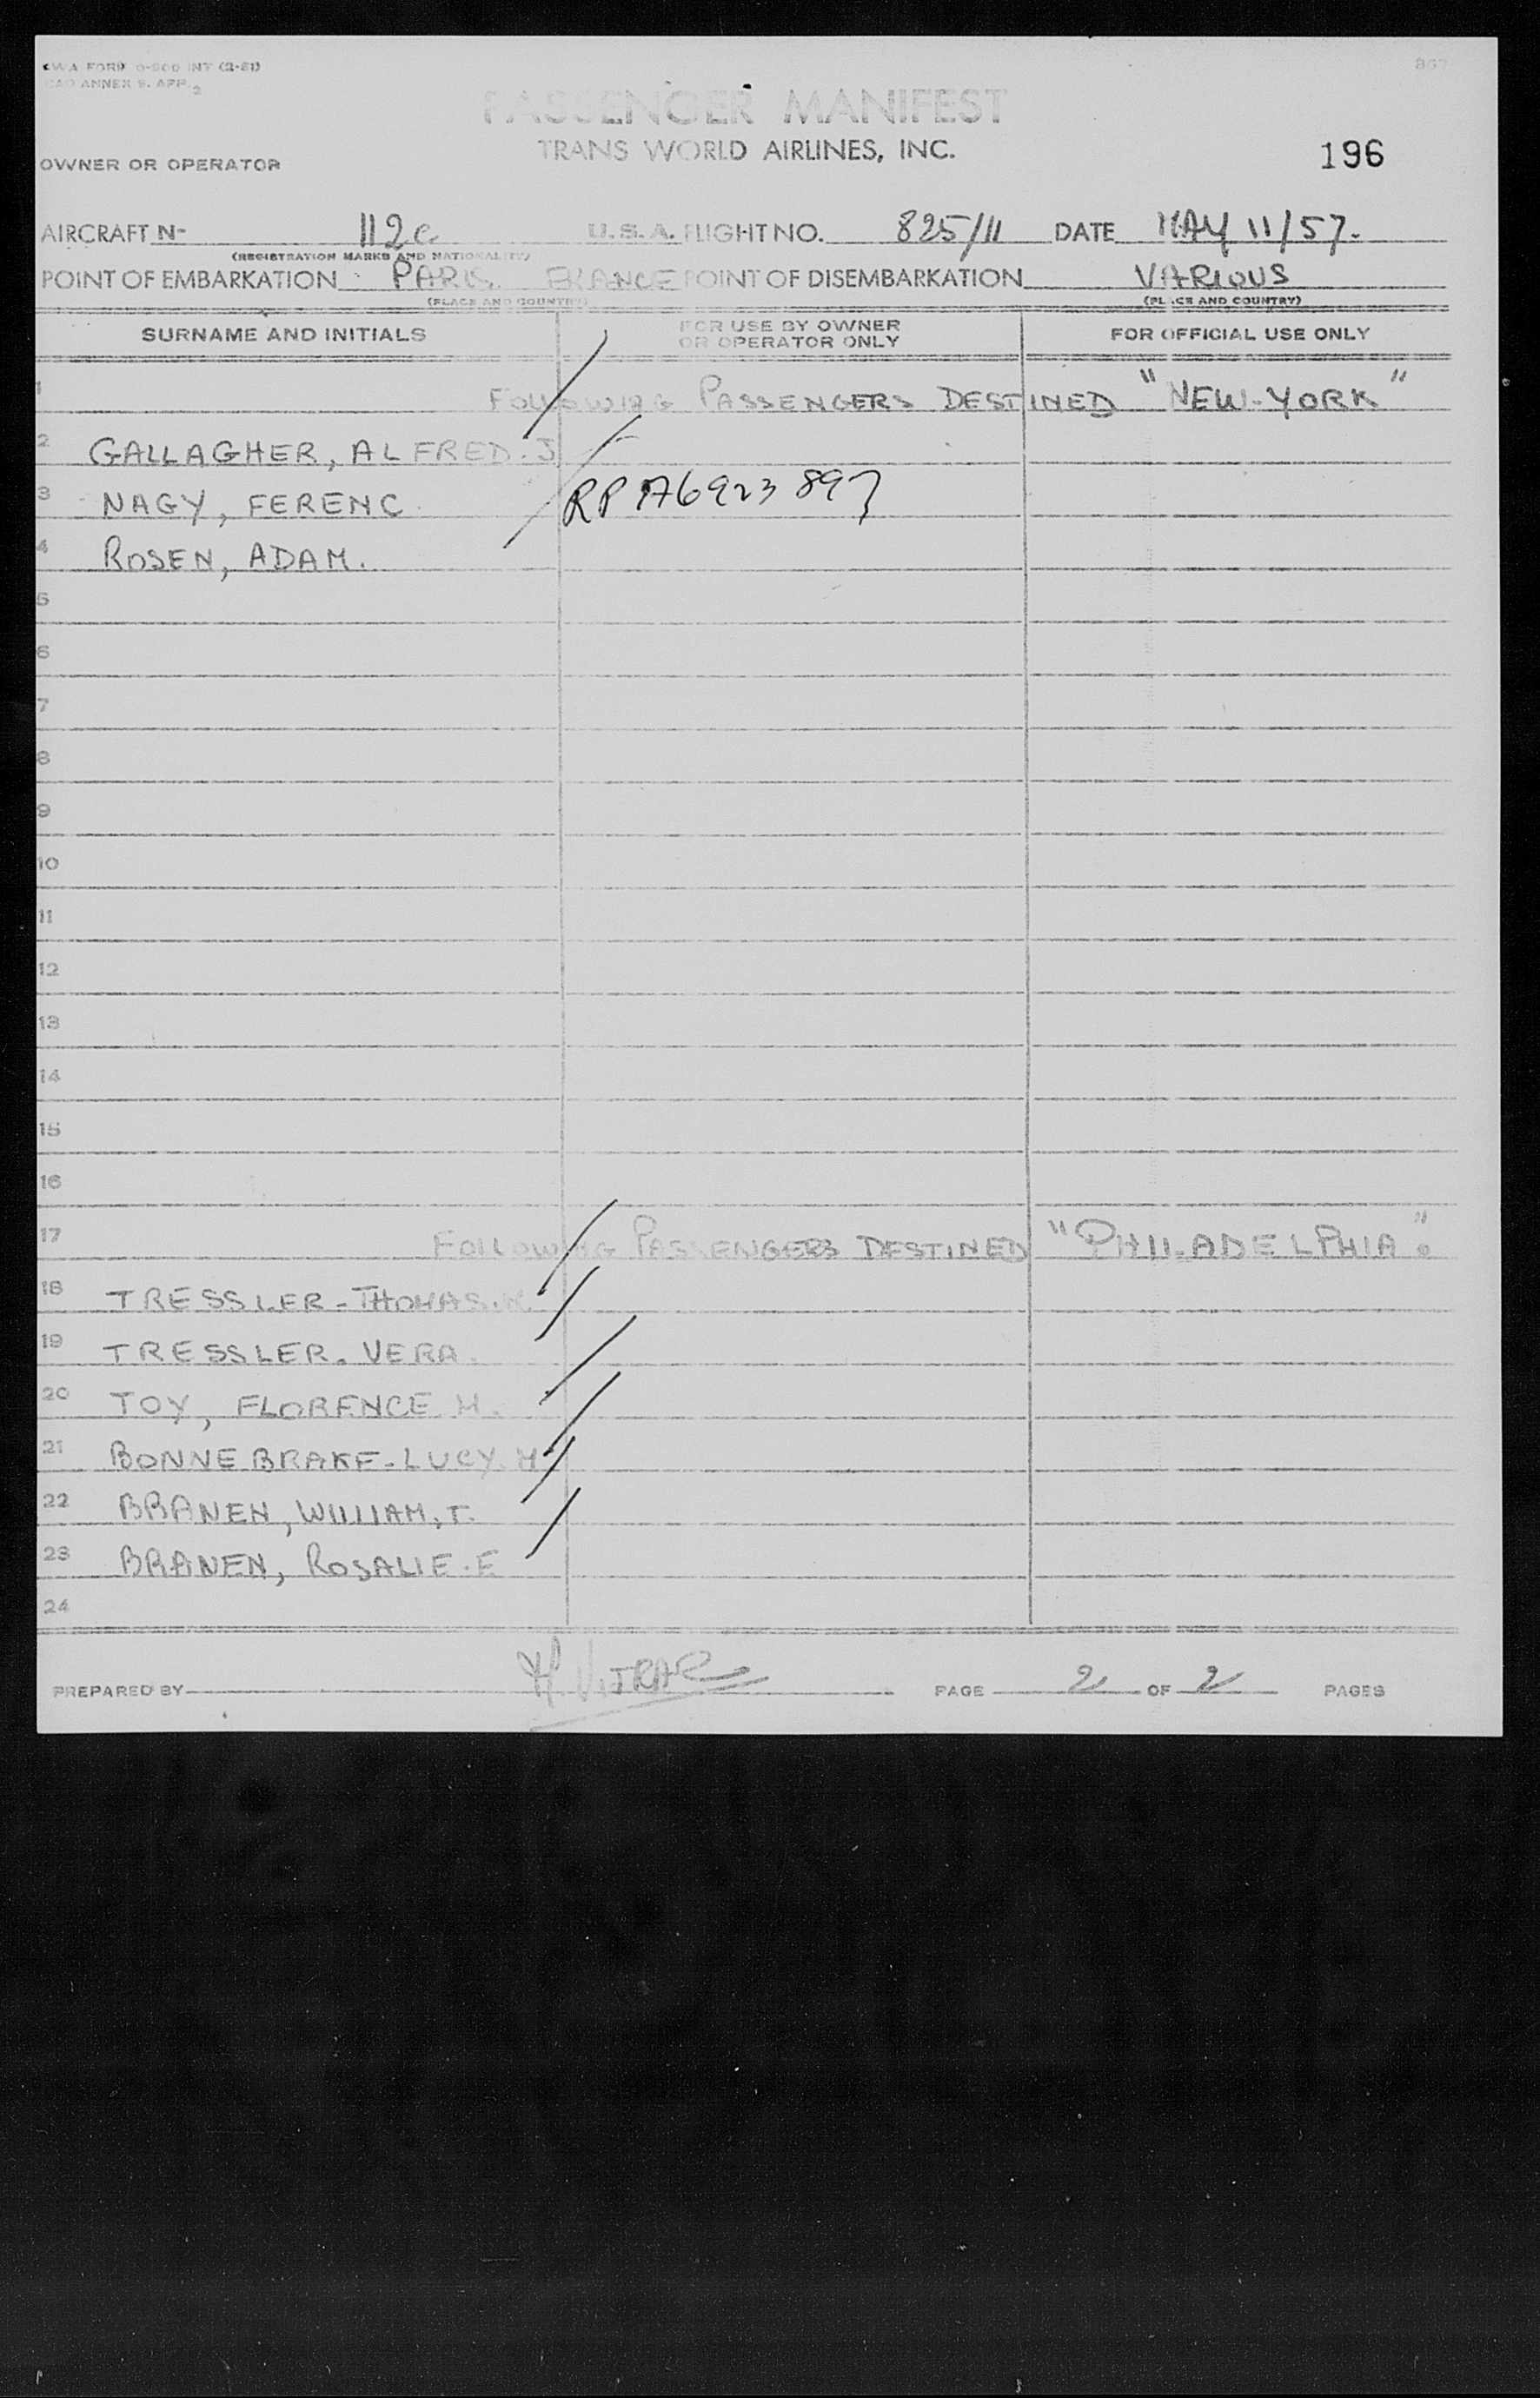 TWA FORM O-500 INT (2-51)
ICAO ANNEX 9. APP. 2
867
PASSENGER MANIFEST
TRANS WORLD AIRLINES, INC.
196
OWNER OR OPERATOR
AIRCRAFT N- 112C U.S.A. FLIGHT NO. 825/11 DATE MAY 11/57.
(REGISTRATION MARKS AND NATIONALITY)
POINT OF EMBARKATION PARIS FRANCE POINT OF DISEMBARKATION VARIOUS
(PLACE AND COUNTRY) (PLACE AND COUNTRY)
SURNAME AND INITIALS FOR USE BY OWNER OR OPERATOR ONLY FOR OFFICIAL USE ONLY
1 FOLLOWING PASSENGERS DESTINED "NEW-YORK"
2 GALLAGHER, ALFRED. J
3 NAGY, FERENC RP A6923897
4 ROSEN, ADAM.
5
6
7
8
9
10
11
12
13
14
15
16
17 FOLLOWING PASSENGERS DESTINED "PHILADELPHIA".
18 TRESSLER-THOMAS.
19 TRESSLER. VERA.
20 TOY, FLORENCE M.
21 BONNEBRAKE-LUCY. M
22 BRANEN, WILLIAM, T.
23 BRANEN, ROSALIE. E
24
PREPARED BY PAGE 2 OF 2 PAGES